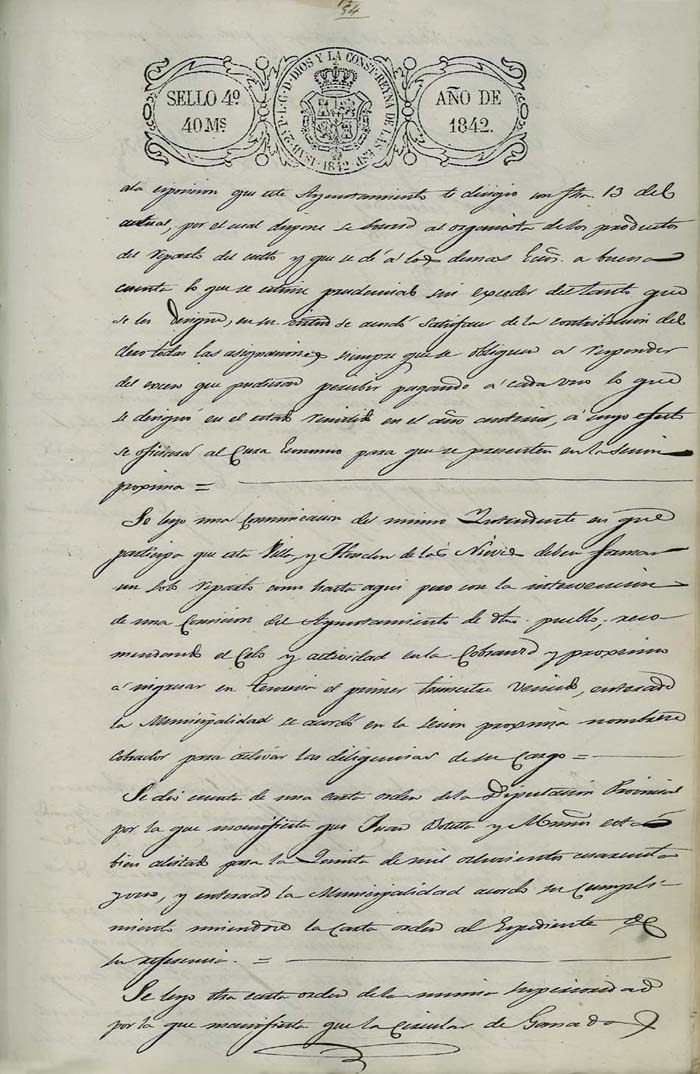 54
SELLO 4º
40 Ms
ISAB. 2ª P. L. G. D. DIOS Y LA CONST. REYNA DE LAS ESP. 1842
AÑO DE
1842.
ala esposicion que este Ayuntamiento le dirigio con fha. 13 del
actual, por el cual dispone se al organista de los productos
del reparto del culto y que se dé á los demas a buena
cuenta lo que se estime prudencial sin exceder del tanto que
se les designe, en su se acordó satisfacer de la contribucion del
todas las asignaciones, siempre que se obliguen á responder
del exceso que pudieran percibir pagando á cada uno lo que
se designó en el estado remitido en el año anterior, á cuyo efecto
se oficiará al Cura Economo para que se presenten en la sesion
proxima =
Se leyo una Comunicacion del mismo Intendente en que
participa que esta Villa y de las Nieves deben formar
un solo reparto como hasta aqui pero con la intervencion
de una Comision del Ayuntamiento de dho. pueblo; reco-
mendando el Celo y actividad en la Cobranza y proximo
á ingresar en Tesoreria el primer trimestre vencido, enterada
la Municipalidad se acordó en la sesion proxima nombrar
Cobrador para activar las diligencias de su Cargo =
Se dio cuenta de una carta orden de la Diputacion Provincial
por la que manifiesta que Juan y Muños está
bien alistado para la Quinta de mil ochocientos cuarenta
y uno, y enterada la Municipalidad acordó su Cumpli-
miento uniendose la Carta orden al Expediente de
su referencia. =
Se leyo otra carta orden de la misma Superioridad
por la que manifiesta que la Circular de Ganados